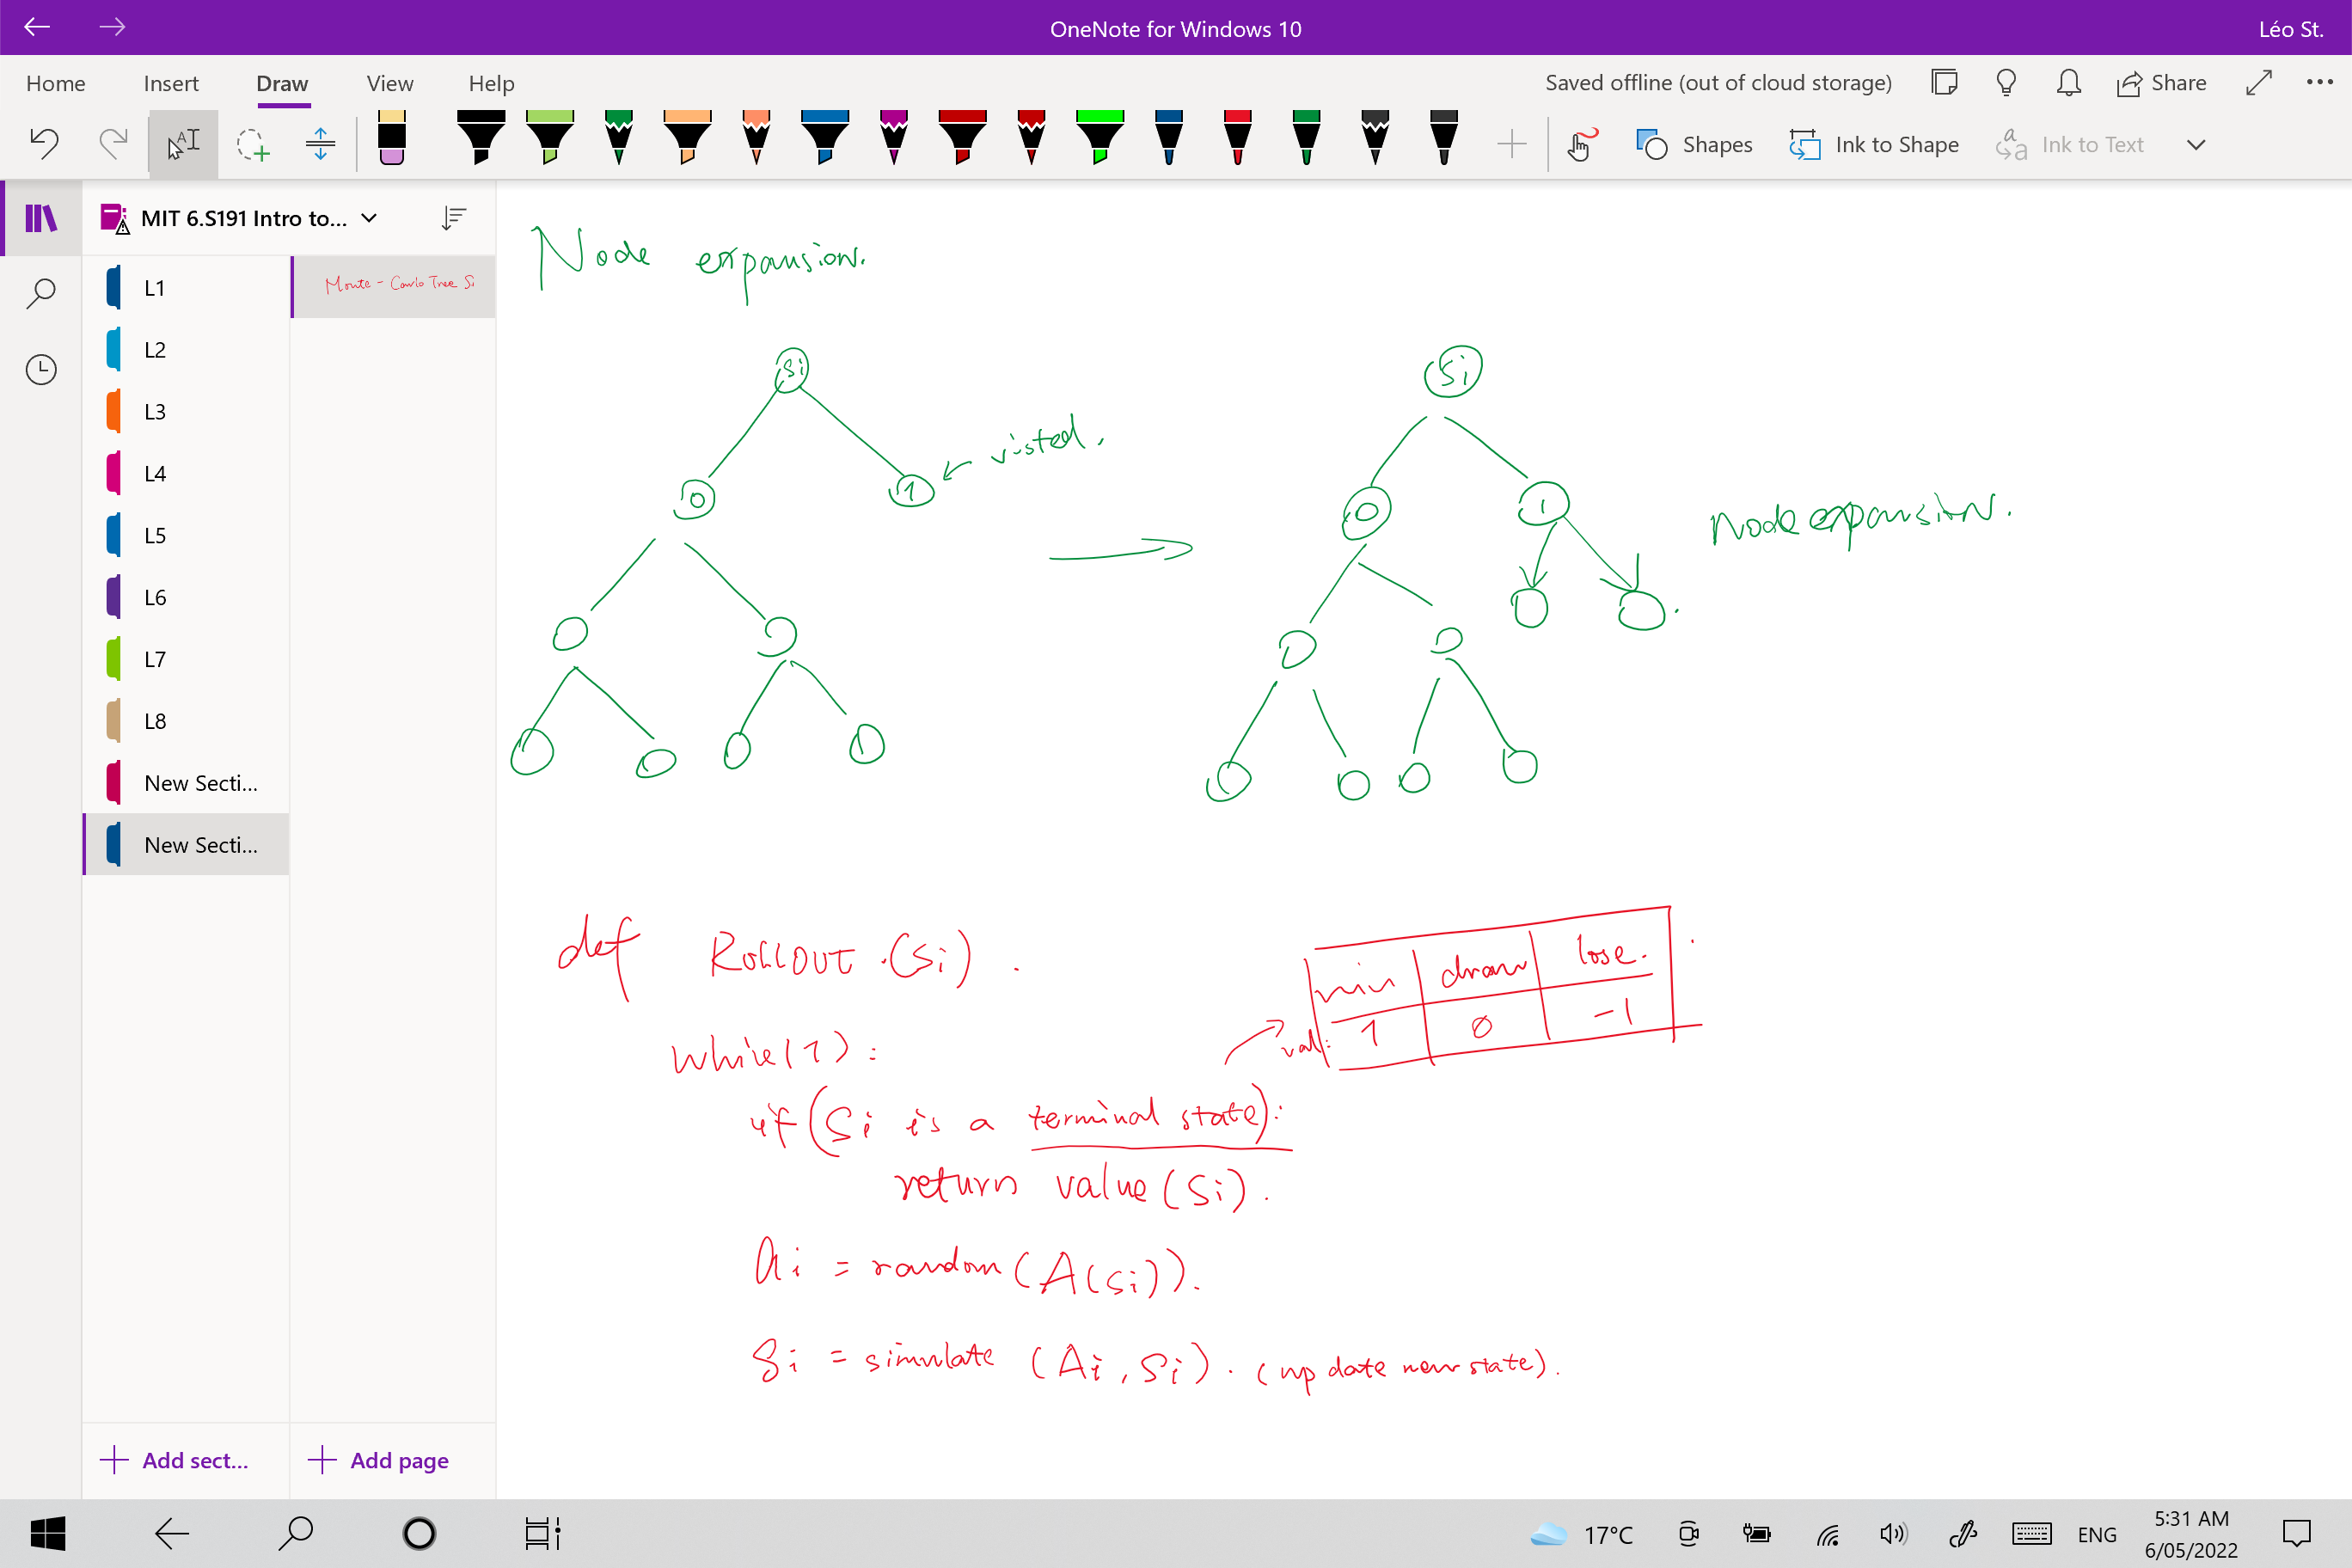 OneNote for Windows 10
Léo St.
Home Insert Draw View Help
Saved offline (out of cloud storage)
Share
Shapes
Ink to Shape
Ink to Text
MIT 6.S191 Intro to...
L1
L2
L3
L4
L5
L6
L7
L8
New Secti...
New Secti...
Monte - Carlo Tree S
Node expansion.
Si
0
1
← visted.
Si
0
1
Node expansion.
def ROLLOUT.(Si).
while(1):
if(Si is a terminal state):
return value(Si).
ai = random(A(Si)).
Si = simulate (Ai, Si). (update new state).
win draw lose.
val: 1 0 -1
Add sect...
Add page
17°C
ENG
5:31 AM
6/05/2022